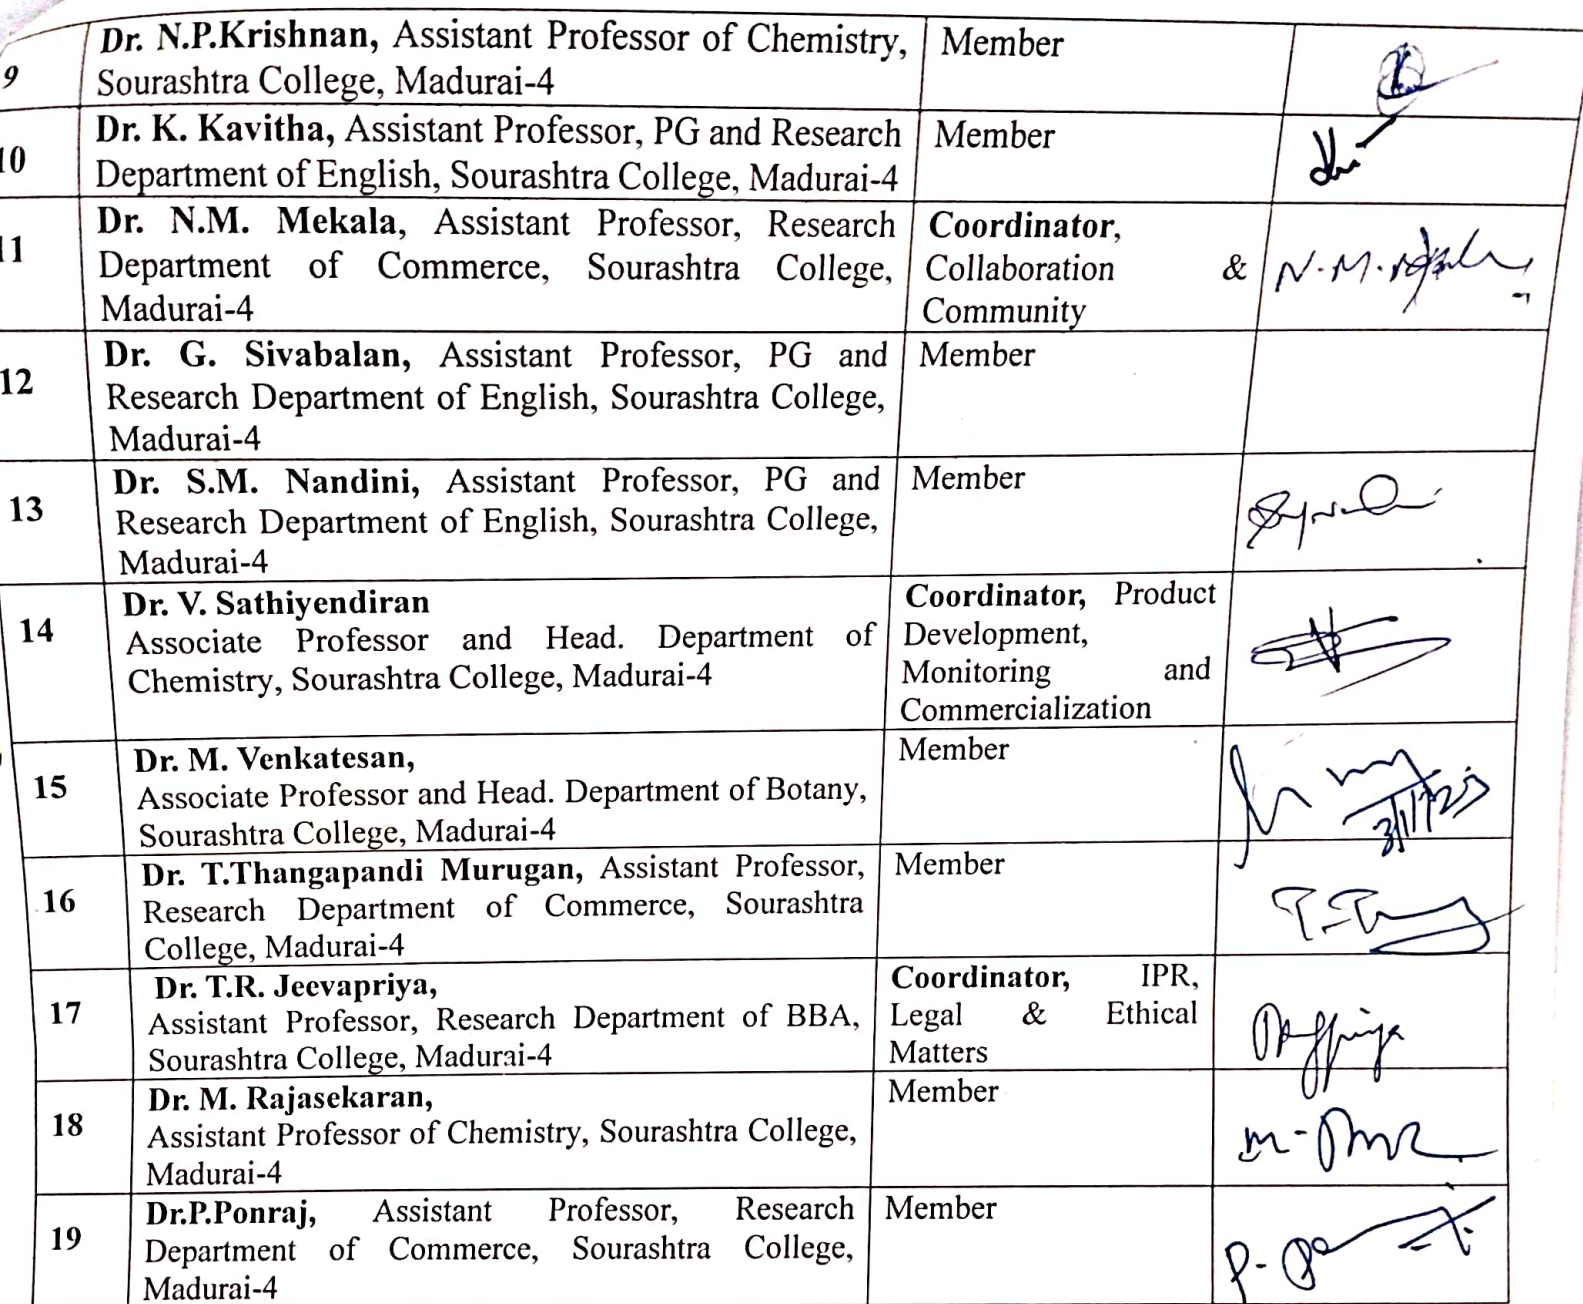 9
Dr. N.P.Krishnan, Assistant Professor of Chemistry,
Sourashtra College, Madurai-4
Member
10
Dr. K. Kavitha, Assistant Professor, PG and Research
Department of English, Sourashtra College, Madurai-4
Member
11
Dr. N.M. Mekala, Assistant Professor, Research
Department of Commerce, Sourashtra College,
Madurai-4
Coordinator,
Collaboration &
Community
N.M.
12
Dr. G. Sivabalan, Assistant Professor, PG and
Research Department of English, Sourashtra College,
Madurai-4
Member
13
Dr. S.M. Nandini, Assistant Professor, PG and
Research Department of English, Sourashtra College,
Madurai-4
Member
14
Dr. V. Sathiyendiran
Associate Professor and Head. Department of
Chemistry, Sourashtra College, Madurai-4
Coordinator, Product
Development,
Monitoring and
Commercialization
15
Dr. M. Venkatesan,
Associate Professor and Head. Department of Botany,
Sourashtra College, Madurai-4
Member
16
Dr. T.Thangapandi Murugan, Assistant Professor,
Research Department of Commerce, Sourashtra
College, Madurai-4
Member
17
Dr. T.R. Jeevapriya,
Assistant Professor, Research Department of BBA,
Sourashtra College, Madurai-4
Coordinator, IPR,
Legal & Ethical
Matters
18
Dr. M. Rajasekaran,
Assistant Professor of Chemistry, Sourashtra College,
Madurai-4
Member
19
Dr.P.Ponraj, Assistant Professor, Research
Department of Commerce, Sourashtra College,
Madurai-4
Member